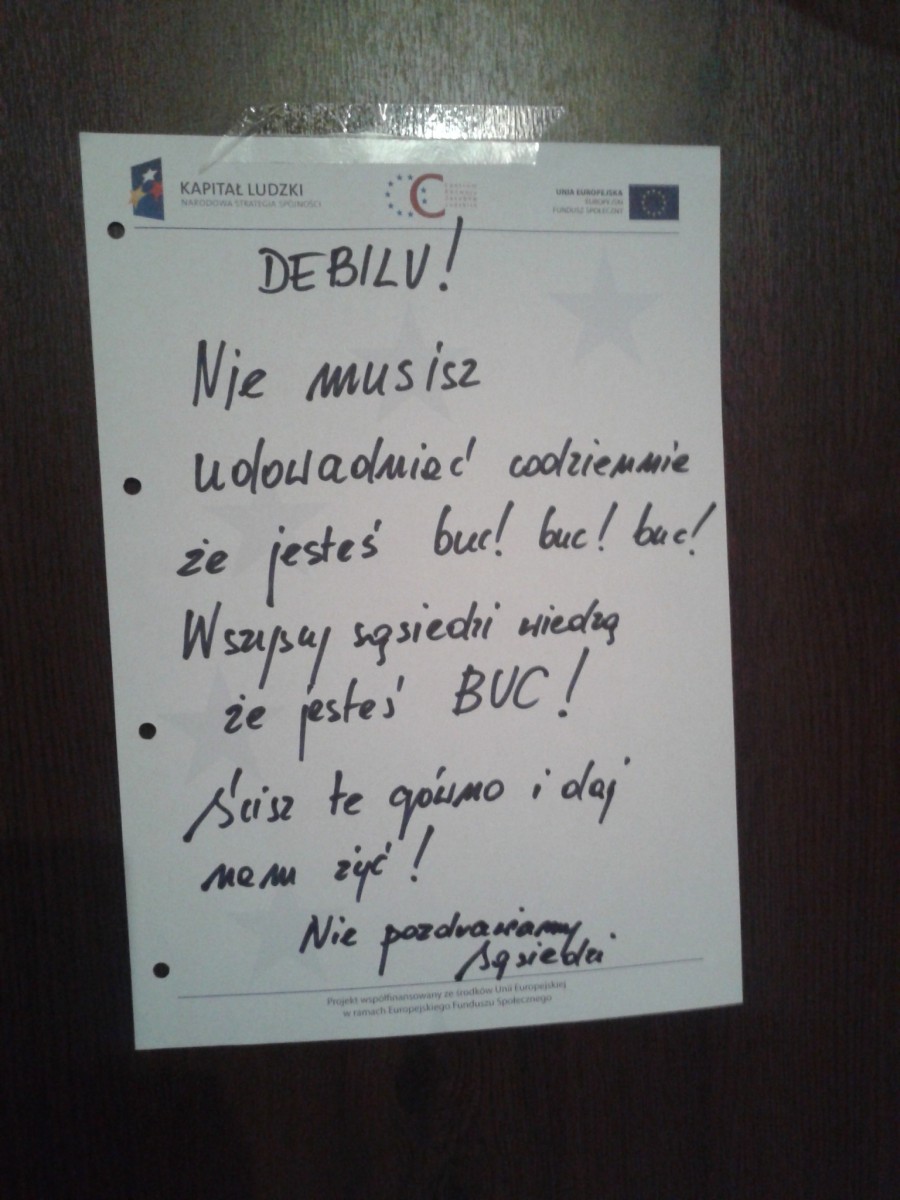 KAPITAŁ LUDZKI
NARODOWA STRATEGIA SPÓJNOŚCI
UNIA EUROPEJSKA
EUROPEJSKI
FUNDUSZ SPOŁECZNY
DEBILU!
Nie musisz
udowadniać codziennie
że jesteś buc! buc! buc!
Wszyscy sąsiedzi wiedzą
że jesteś BUC!
Ścisz te gówno i daj
nam żyć!
Nie pozdrawiamy
sąsiedzi
Projekt współfinansowany ze środków Unii Europejskiej
w ramach Europejskiego Funduszu Społecznego